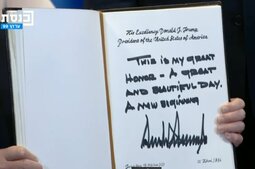 כנסת
ערוץ 99
His Excellency Donald J. Trump
President of the United States of America
THIS IS MY GREAT
HONOR - A GREAT
AND BEAUTIFUL DAY.
A NEW BIGINNING